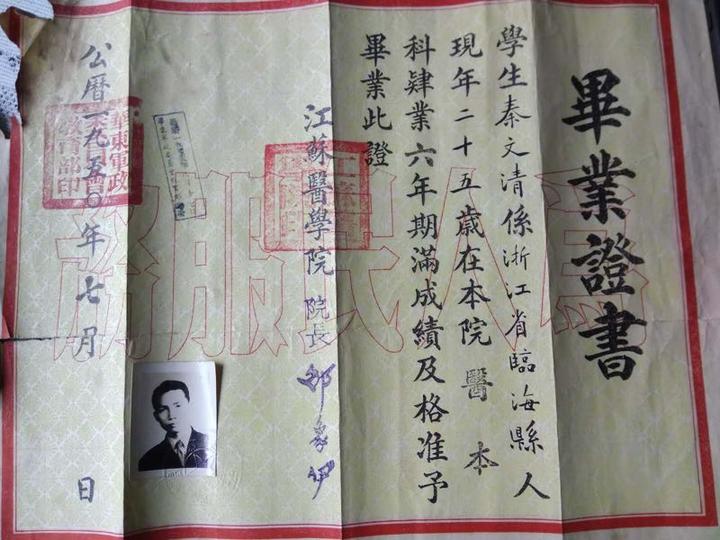 畢業證書
學生秦文清係浙江省臨海縣人
現年二十五歲在本院醫本
科肄業六年期滿成績及格准予
畢業此證
江蘇醫學院院長
公曆一九五〇年七月 日
為人民服務
華東軍政
教育部印